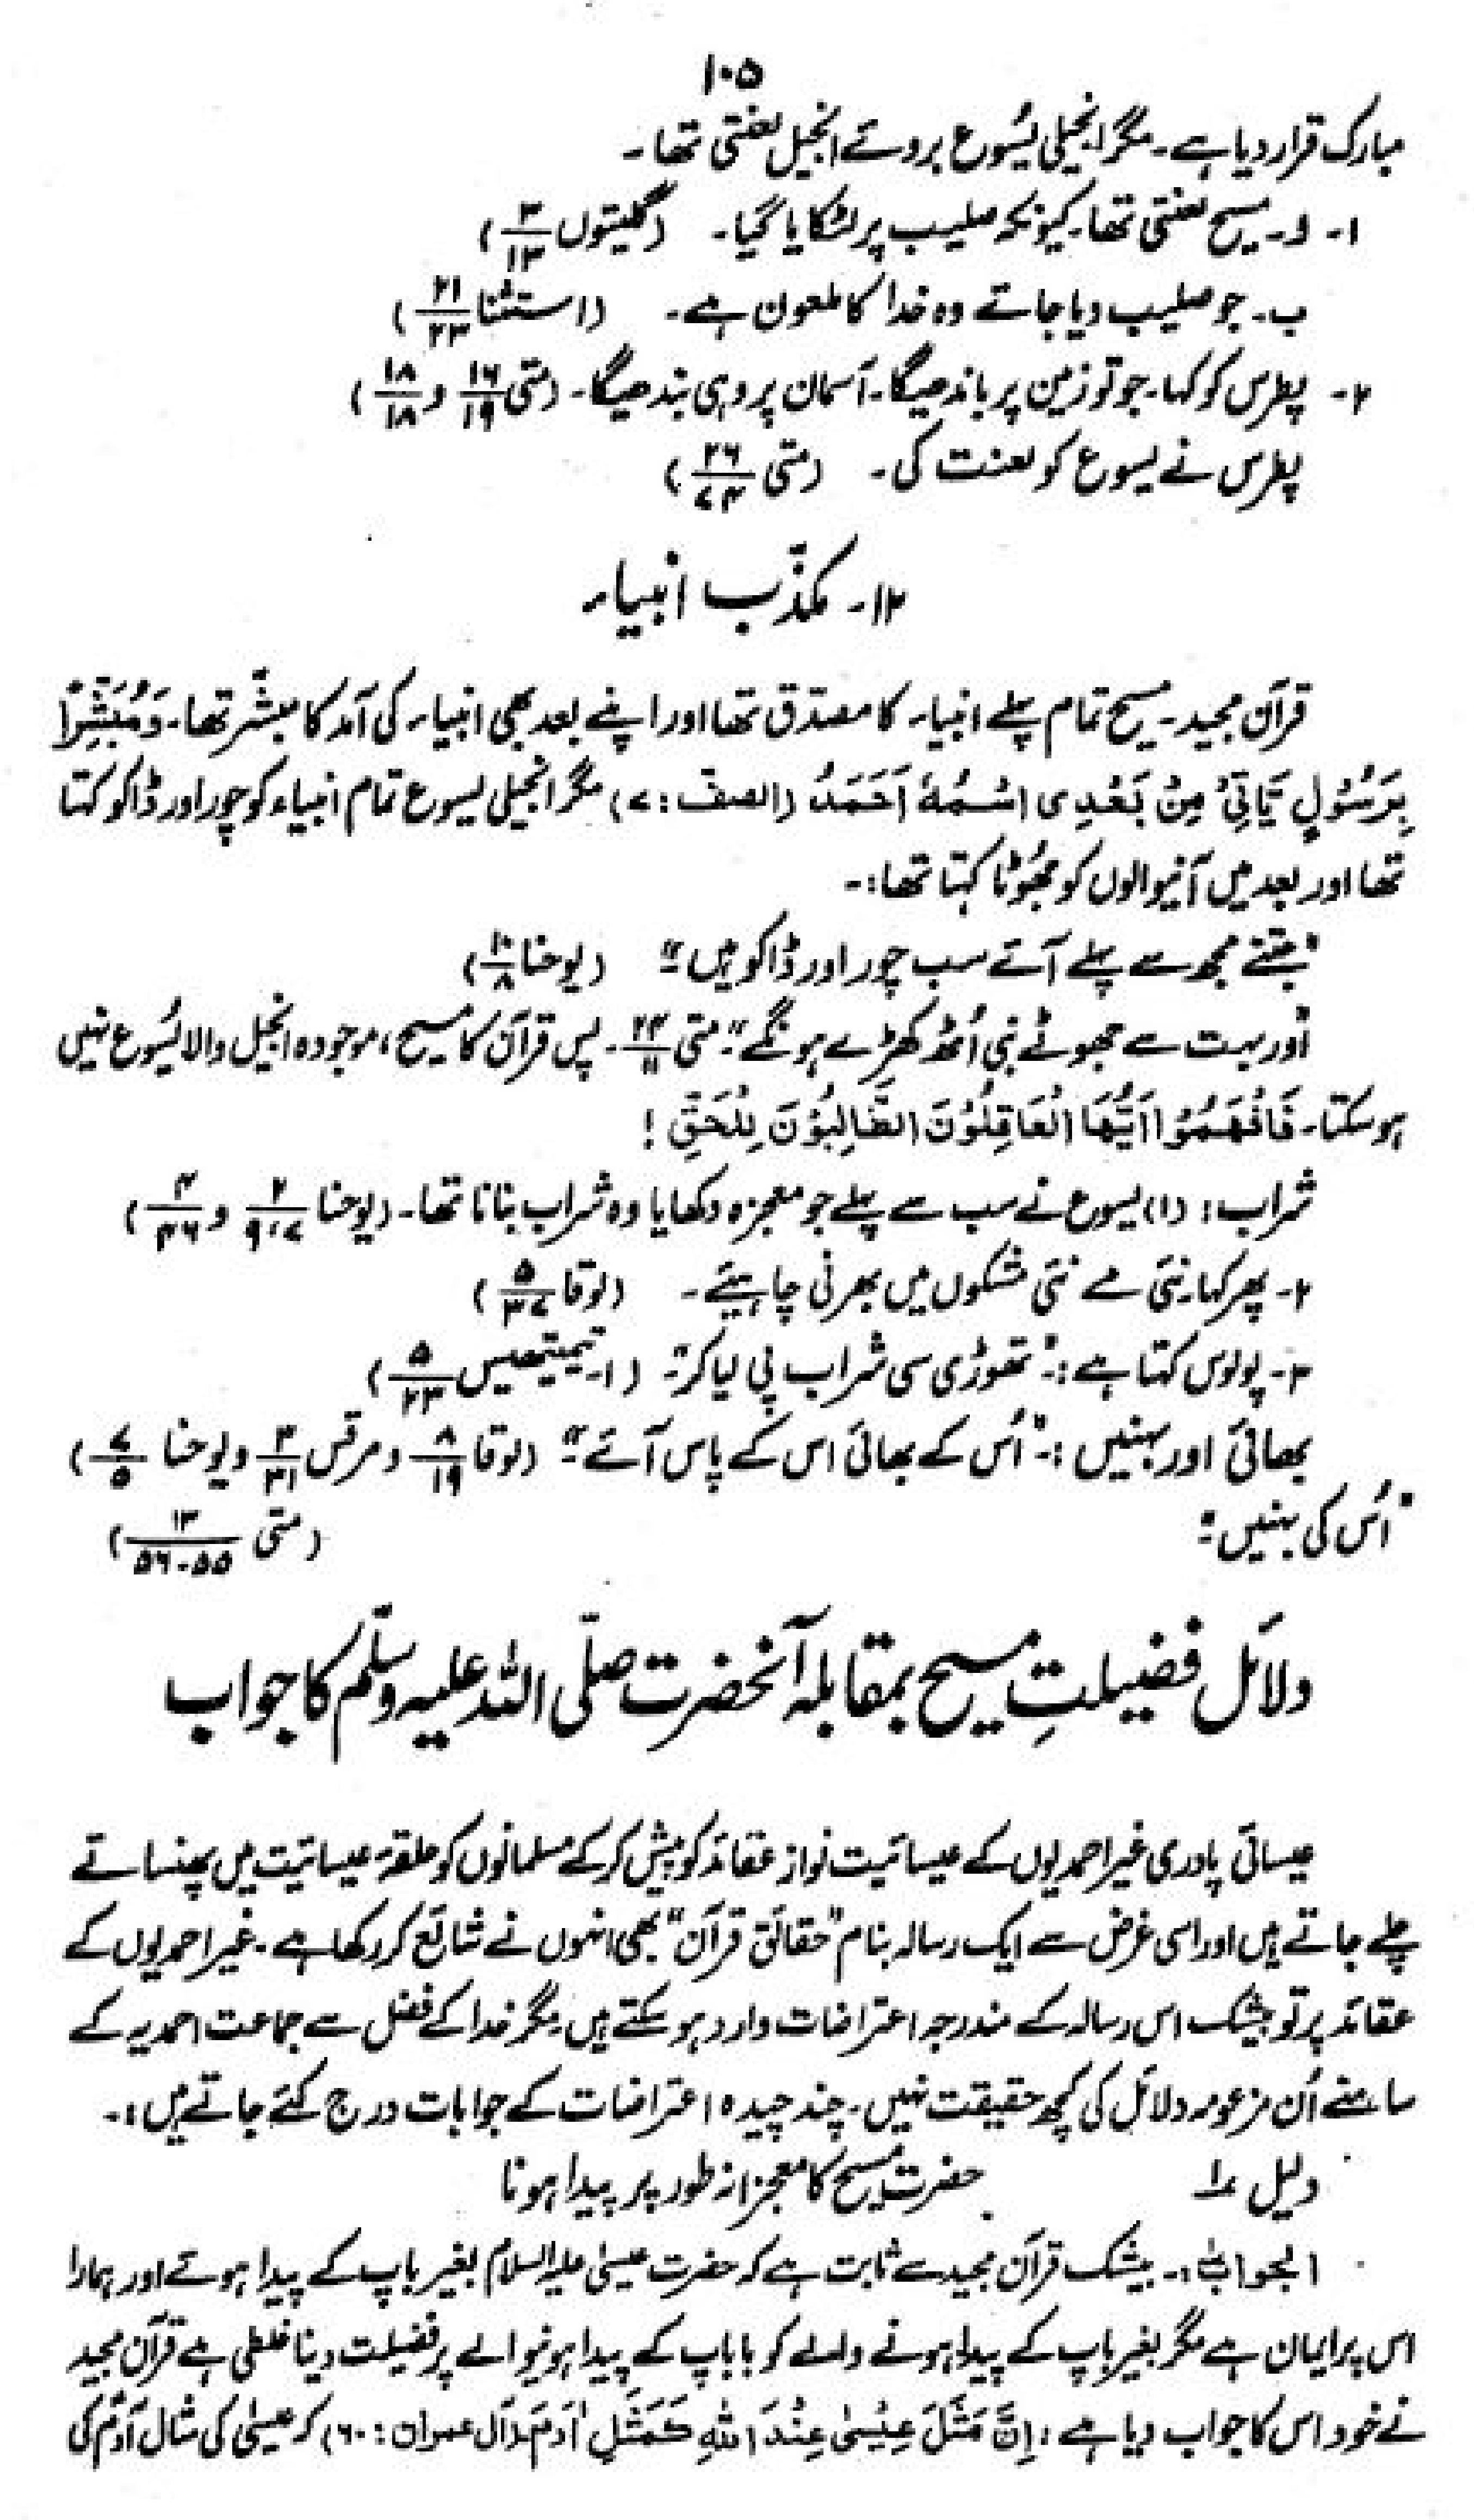 ۱۰۵
مبارک قرار دیا ہے۔ مگر انجیلی یسُوع بروئے انجیل لعنتی تھا۔
۱۔ ا۔ مسیح لعنتی تھا۔ کیونکہ صلیب پر لٹکایا گیا۔ (گلیتوں ۳/۱۳)
ب۔ جو صلیب دیا جاتے وہ خدا کا ملعون ہے۔ (استثنا ۲۱/۲۳)
۲۔ پطرس کو کہا۔ جو تو زمین پر باندھیگا۔ آسمان پر وہی بندھیگا۔ (متی ۱۶/۱۹ و ۱۸/۱۸)
پطرس نے یسوع کو لعنت کی۔ (متی ۲۶/۷۴)
۱۲۔ مکذّب انبیاء
قرآن مجید۔ مسیح تمام پہلے انبیاء کا مصدق تھا اور اپنے بعد بھی انبیاء کی آمد کا مبشّر تھا۔ وَمُبَشِّرًا
بِرَسُوْلٍ یَّاْتِیْ مِنْۢ بَعْدِی اسْمُهٗ اَحْمَدُ (الصف : ۷) مگر انجیلی یسوع تمام انبیاء کو چور اور ڈاکو کہتا
تھا اور بعد میں آنیوالوں کو جھُوٹا کہتا تھا:۔
"جتنے مجھ سے پہلے آئے سب چور اور ڈاکو ہیں" (یوحنا ۱۰/۸)
"اور بہت سے جھوٹے نبی اُٹھ کھڑے ہونگے"۔ متی ۲۴/۱۱ ۔ پس قرآن کا مسیح، موجودہ انجیل والا یسُوع نہیں
ہو سکتا۔ فَافْهَمُوْا اَیُّهَا الْعَاقِلُوْنَ الطَّالِبُوْنَ لِلْحَقِّ !
شراب: (۱) یسوع نے سب سے پہلے جو معجزہ دکھایا وہ شراب بنانا تھا۔ (یوحنا ۲/۹،۷ و ۴/۴۶)
۲۔ پھر کہا۔ نئی مے نئی مشکوں میں بھرنی چاہیئے۔ (لوقا ۵/۳۷)
۳۔ پولوس کہتا ہے :۔ "تھوڑی سی شراب پی لیا کر"۔ (۱۔ تیمتھیس ۵/۲۳)
بھائی اور بہنیں :۔ "اُس کے بھائی اس کے پاس آئے" (لوقا ۸/۱۹ و مرقس ۳/۳۱ و یوحنا ۷/۵)
"اُس کی بہنیں" (متی ۱۳/۵۵-۵۶)
دلائل فضیلتِ مسیح بمقابلہ آنحضرت صلّی اللہ علیہ وسلّم کا جواب
عیسائی پادری غیر احمدیوں کے عیسائیت نواز عقائد کو پیش کر کے مسلمانوں کو حلقۂ عیسائیت میں پھنساتے
چلے جاتے ہیں اور اسی غرض سے ایک رسالہ بنام "حقائق قرآن" بھی انہوں نے شائع کر رکھا ہے۔ غیر احمدیوں کے
عقائد پر تو بیشک اس رسالہ کے مندرجہ اعتراضات وارد ہو سکتے ہیں۔ مگر خدا کے فضل سے جماعت احمدیہ کے
سامنے اُن مزعومہ دلائل کی کچھ حقیقت نہیں۔ چند چیدہ اعتراضات کے جوابات درج کئے جاتے ہیں:۔
دلیل ۱ حضرت مسیح کا معجزانہ طور پر پیدا ہونا
الجواب:۔ بیشک قرآن مجید سے ثابت ہے کہ حضرت عیسیٰ علیہ السلام بغیر باپ کے پیدا ہوئے اور ہمارا
اس پر ایمان ہے مگر بغیر باپ کے پیدا ہونے والے کو با باپ کے پیدا ہونیوالے پر فضیلت دینا غلطی ہے قرآن مجید
نے خود اس کا جواب دیا ہے : اِنَّ مَثَلَ عِیْسٰی عِنْدَ اللّٰهِ كَمَثَلِ اٰدَمَ (آل عمران : ۶۰) کہ عیسیٰ کی مثال آدم کی